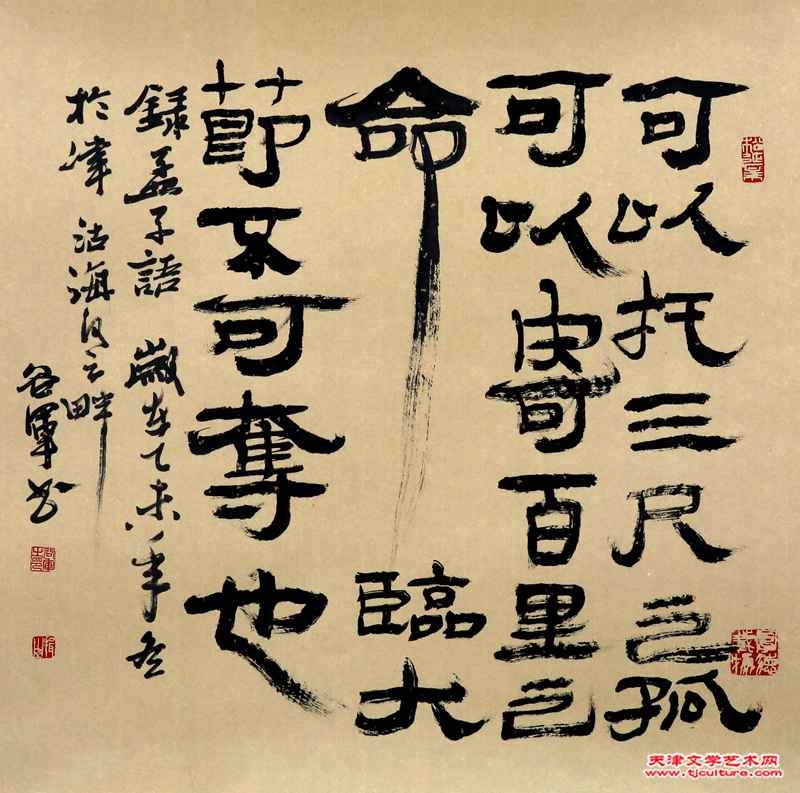 可以托三尺之孤
可以寄百里之
命 臨大
節不可奪也
錄孟子語 歲在乙未年冬
於津沽海河之畔
谷軍书
天津文学艺术网
www.tjculture.com